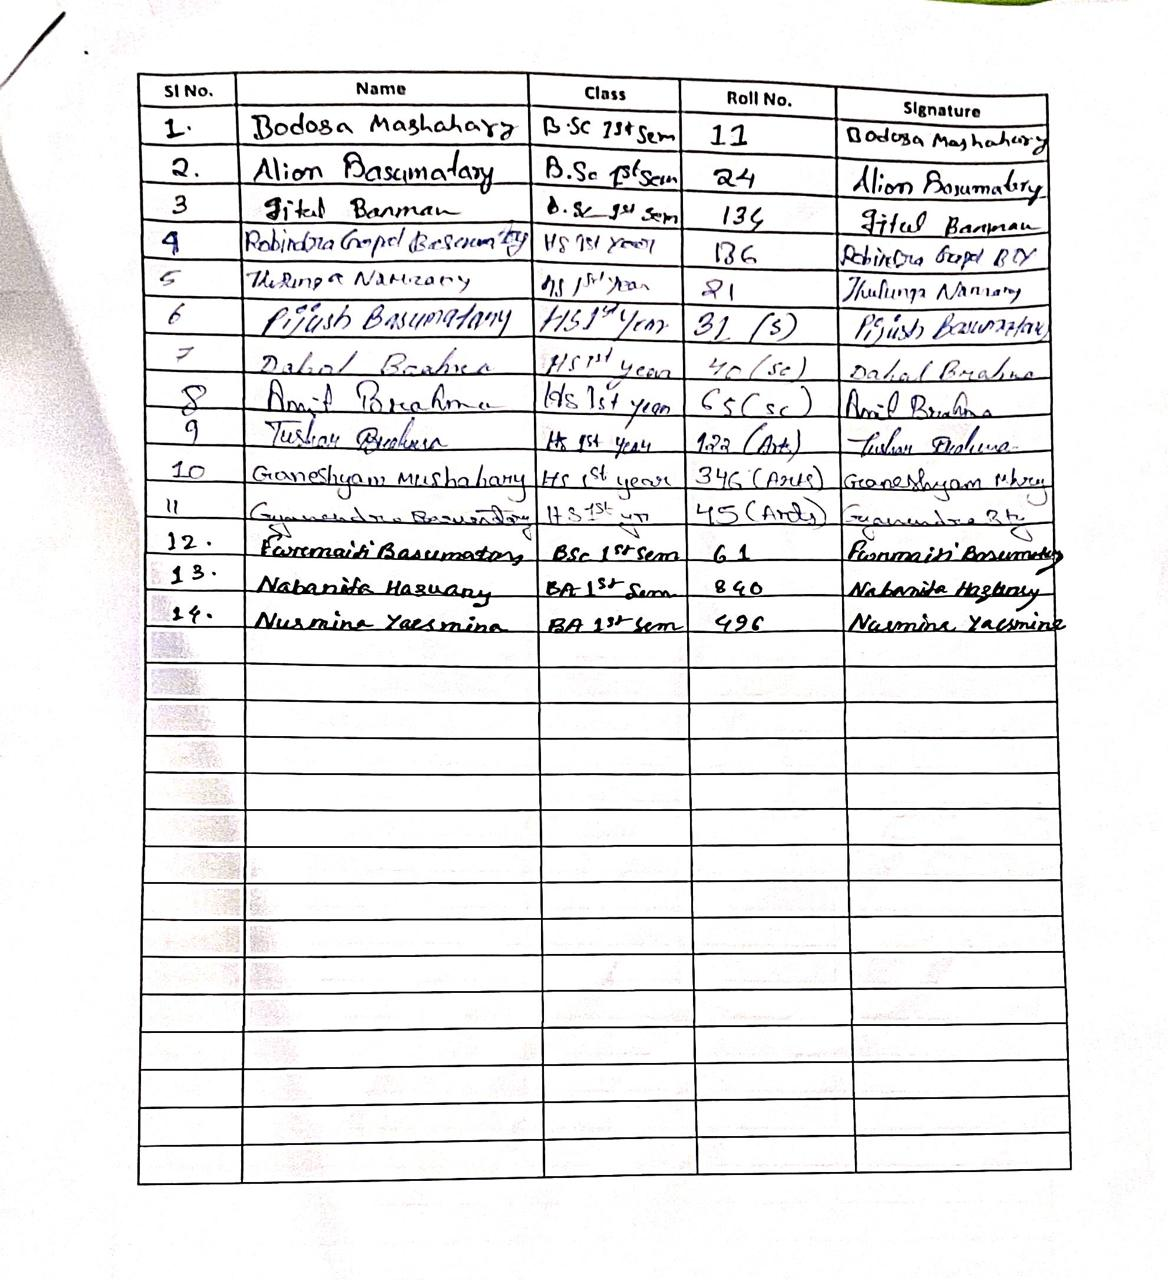 Sl No. Name Class Roll No. Signature
1. Bodosa Mashahary B.Sc 1st Sem 11 Bodosa Mashahary
2. Alion Basumatary B.Sc 1st Sem 24 Alion Basumatary
3 Jitul Barman B.Sc 1st Sem 134 Jitul Barman
4 Rabindra Gopal Basumatary HS 1st year 136 Rabindra Gopal BTY
5 Thulunga Narzary HS 1st year 21 Thulunga Narzary
6 Pijush Basumatary HS 1st Year 31 (S) Pijush Basumatary
7 Dahal Brahma HS 1st year 40 (Sc) Dahal Brahma
8 Amit Brahma HS 1st year 65 (Sc) Amit Brahma
9 Tushar Brahma HS 1st year 122 (Arts) Tushar Brahma
10 Ganeshyam Mushahary HS 1st year 346 (Arts) Ganeshyam
11 Gyanendra Basumatary HS 1st yr 45 (Arts) Gyanendra Bty
12. Purnmaiti Basumatary BSc 1st Sem 61 Purnmaiti Basumatary
13. Nabanita Hazuary BA 1st Sem 840 Nabanita
14. Nusmina Yaesmina BA 1st Sem 496 Nusmina Yaesmine